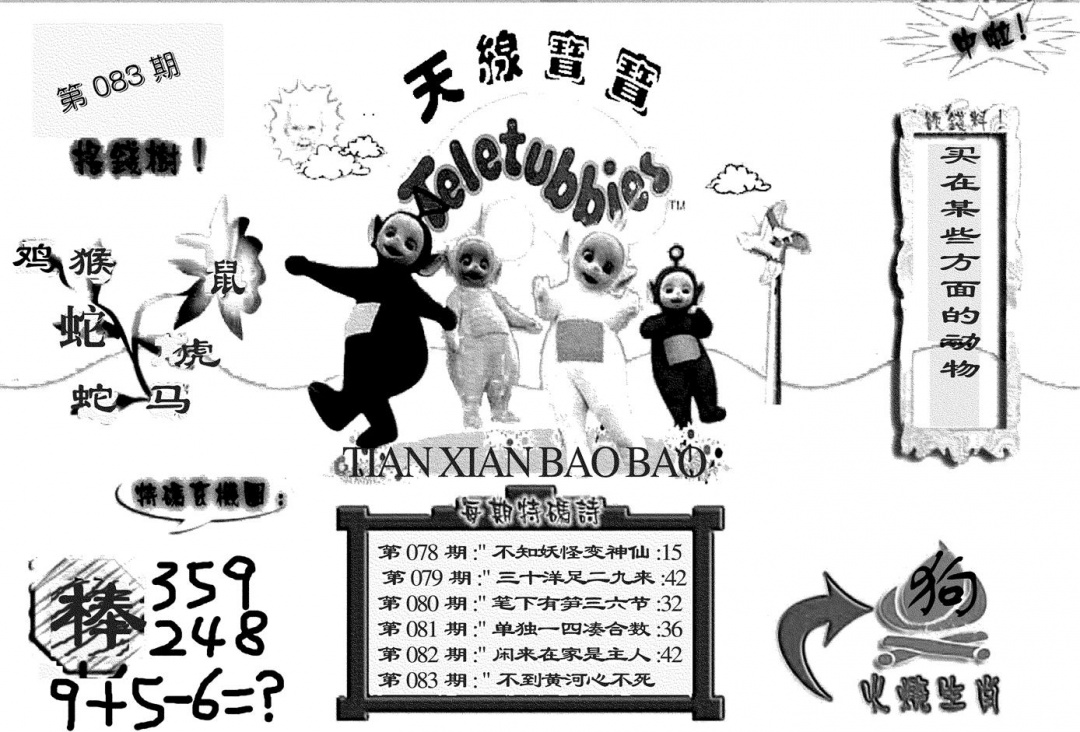 第 083 期
天線寶寶
中啦！
Teletubbies
TM
摇錢樹！
鸡 猴
鼠
蛇
虎
蛇 马
買
在
某
些
方
面
的
动
物
TIAN XIAN BAO BAO
特碼玄機圖：
棒
359
248
9+5-6=?
每期特碼詩
第 078 期 :" 不知妖怪变神仙 :15
第 079 期 :" 三十洋足二九来 :42
第 080 期 :" 笔下有笋三六节 :32
第 081 期 :" 单独一四凑合数 :36
第 082 期 :" 闲来在家是主人 :42
第 083 期 :" 不到黄河心不死
狗
火燒生肖